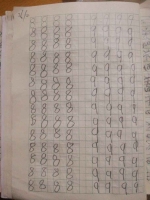 8 8 8 8 9 9 9 9
8 8 8 8 9 9 9 9
8 8 8 8 9 9 9 9
8 8 8 8 9 9 9 9
8 8 8 8 9 9 9 9
8 8 8 8 9 9 9 9
8 8 8 8 9 9 9 9
8 8 8 8 9 9 9 9
8 8 8 8 9 9 9 9
8 8 8 8 9 9 9 9
8 8 8 8 9 9 9 9
8 8 8 8 9 9 9 9
8 8 8 8 9 9 9 9
8 8 8 8 9 9 9 9